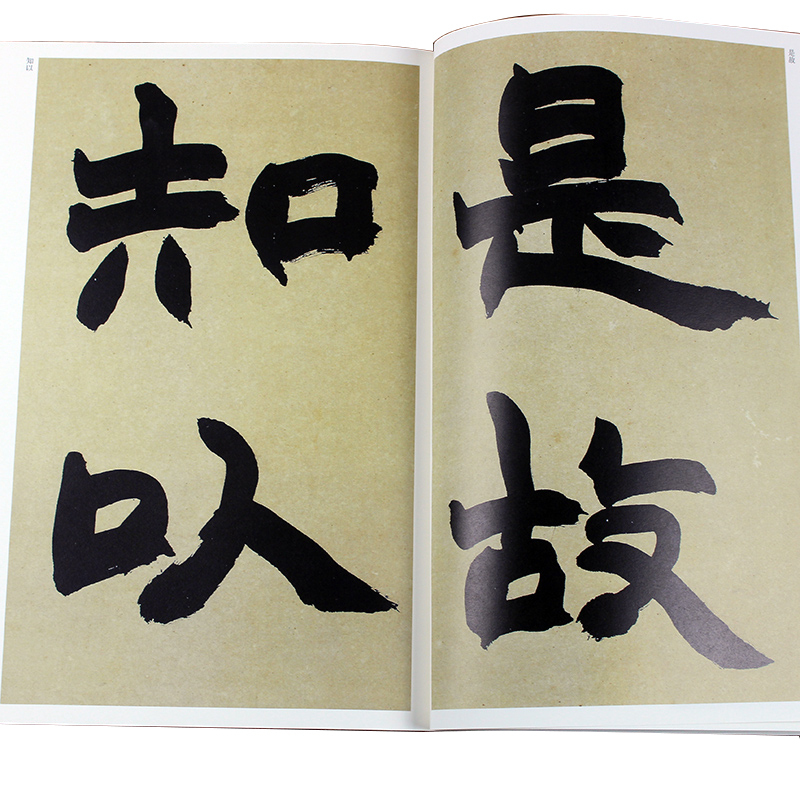 是故
是故
知以
知以